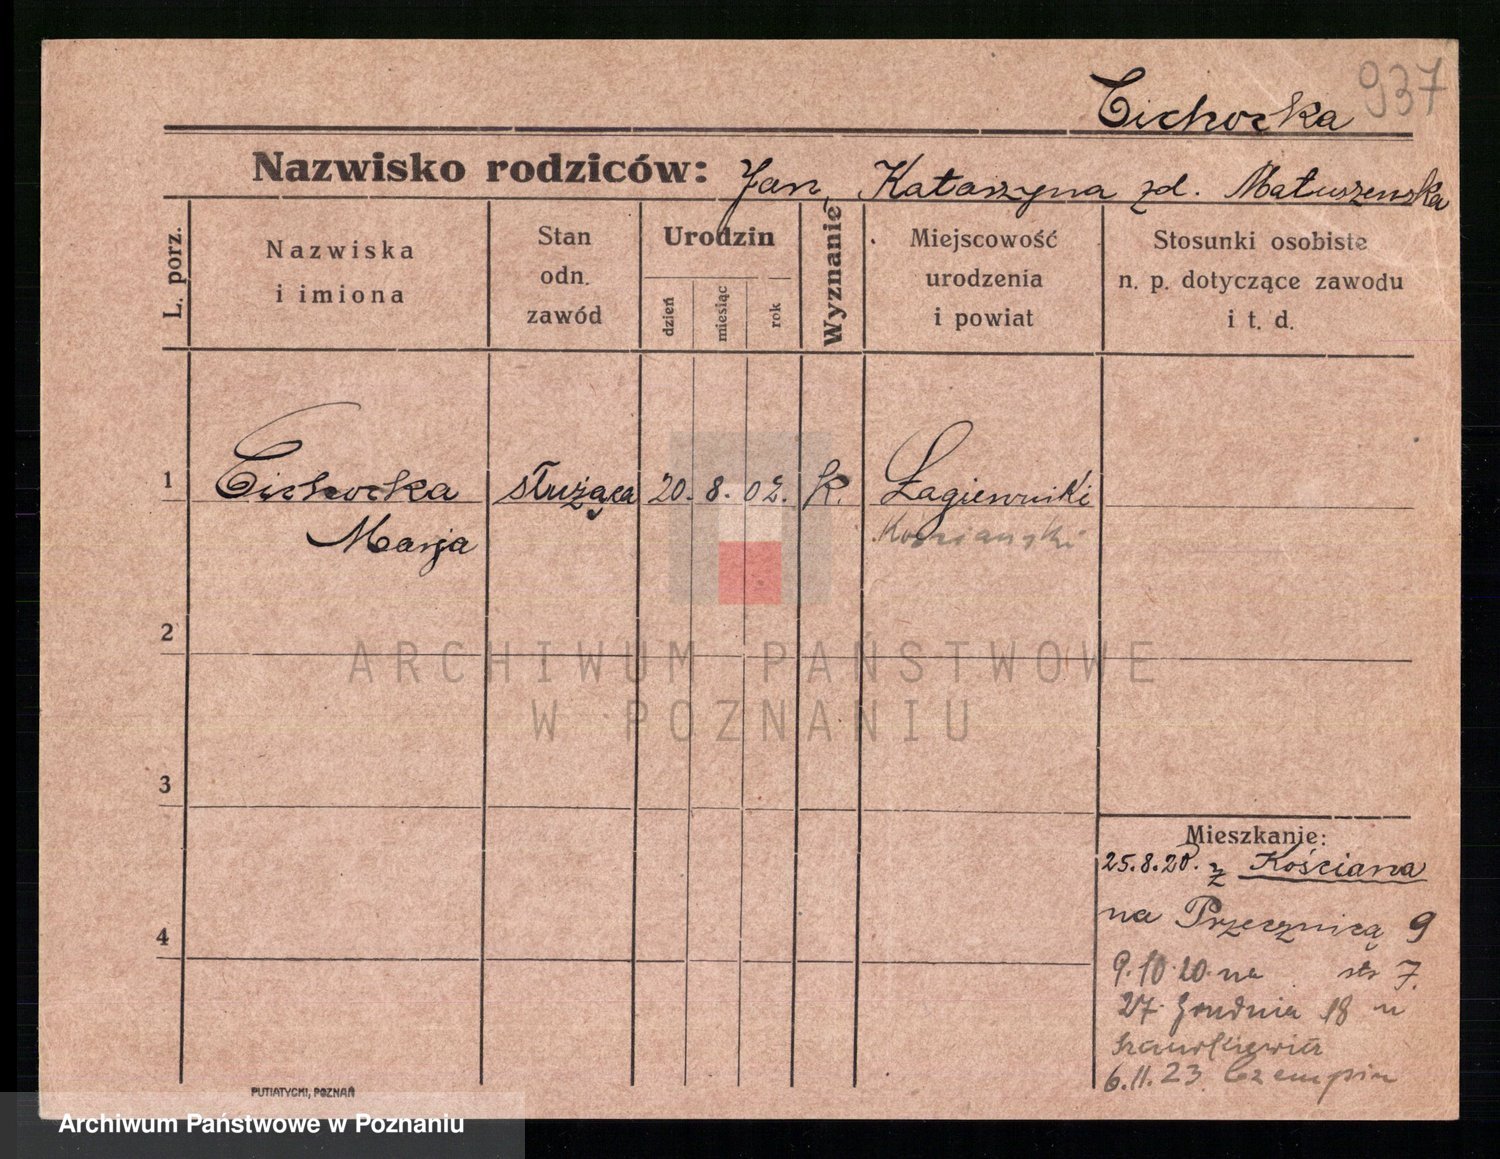 937
Cichocka
Nazwisko rodziców: Jan, Katarzyna zd. Matuszewska
L. porz.
Nazwiska
i imiona
Stan
odn.
zawód
Urodzin
dzień
miesiąc
rok
Wyznanie
Miejscowość
urodzenia
i powiat
Stosunki osobiste
n. p. dotyczące zawodu
i t. d.
1 Cichocka służąca 20. 8. 02. k. Łagiewniki
Marja
Kościański
2
3
4
Mieszkanie:
25.8.20. z Kościana
na Przecznicą 9
9.10.20 na 7.
27 Grudnia 18 u
6.11.23 Czempin
PUTIATYCKI, POZNAŃ
ARCHIWUM PAŃSTWOWE
W POZNANIU
Archiwum Państwowe w Poznaniu